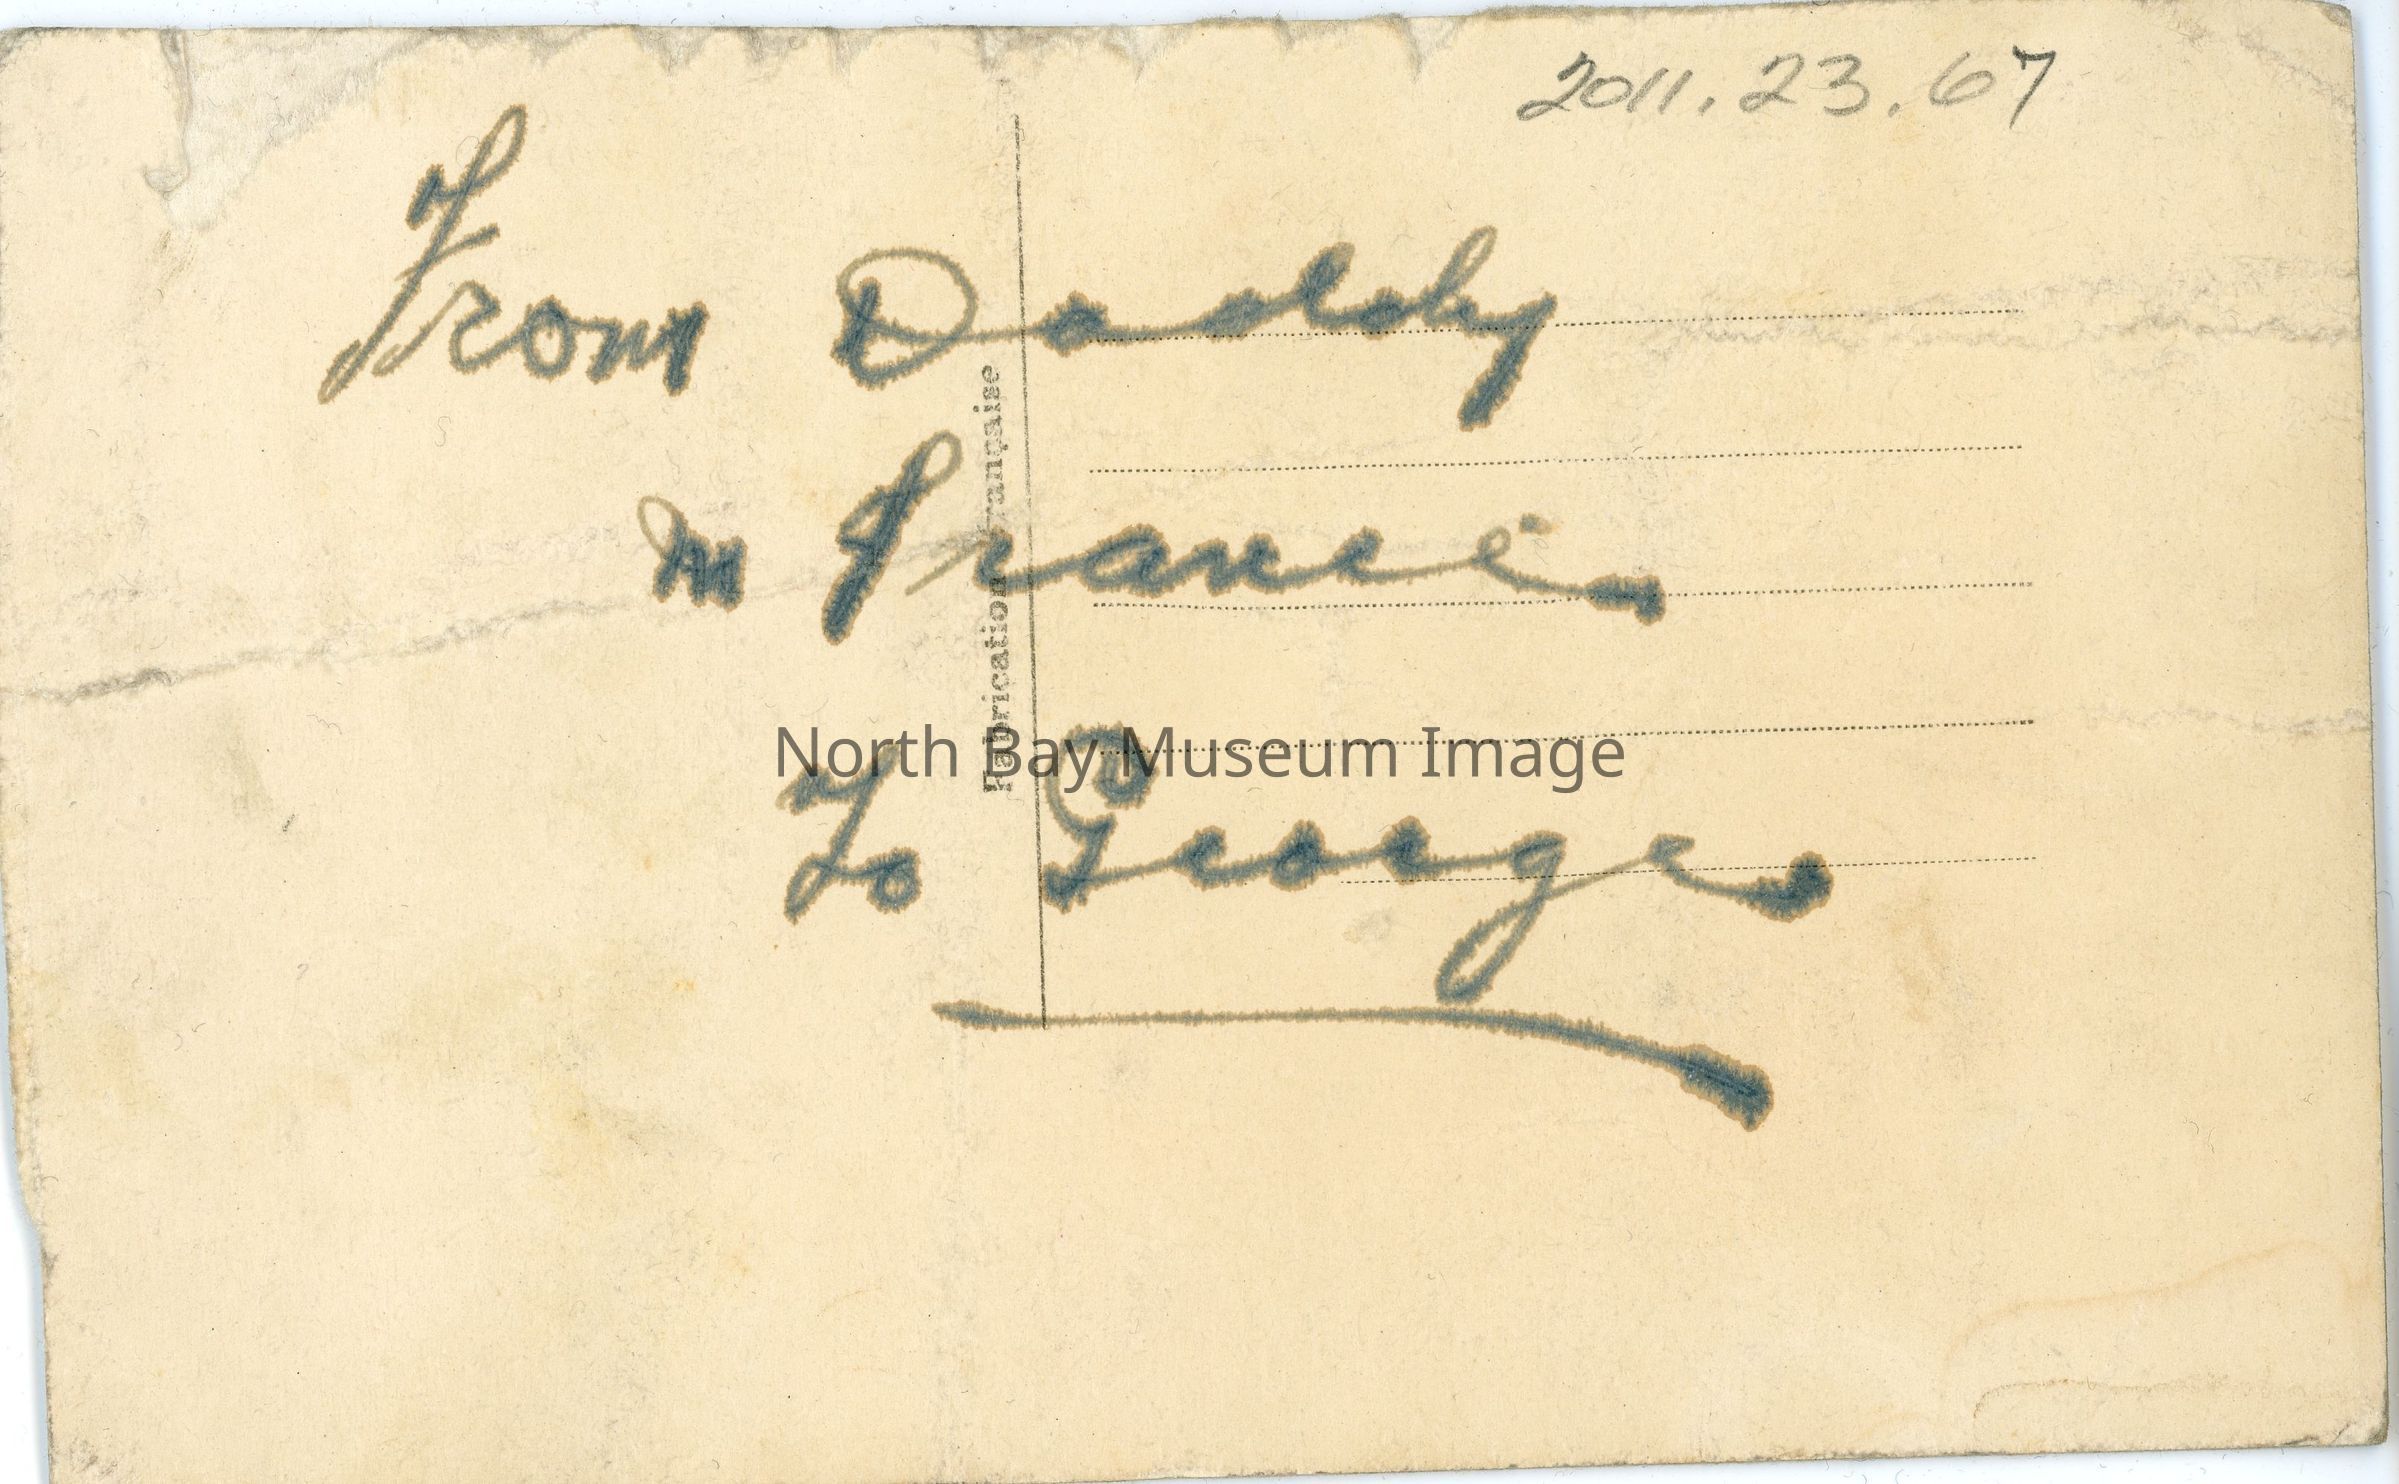 2011.23.67
From Daddy
in France
Fabrication Française
North Bay Museum Image
To George